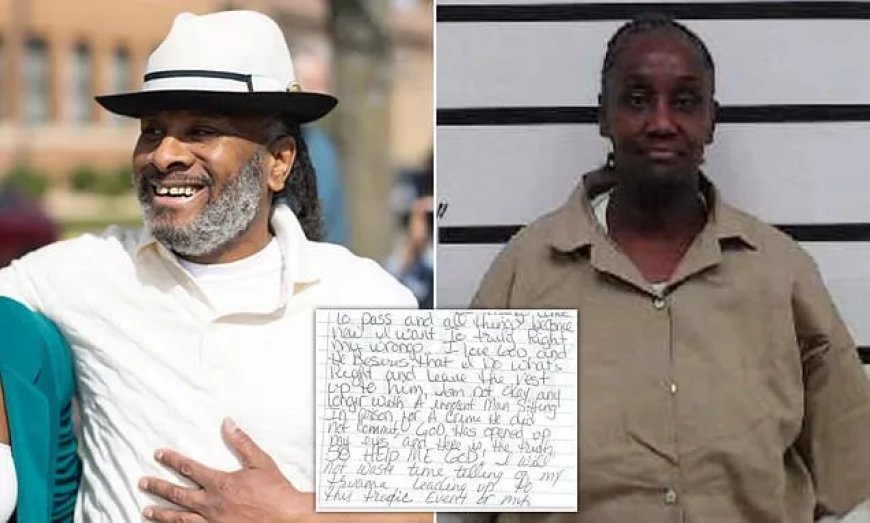 to pass and all things become
new I want to truly Right
my wrongs. I love GOD, and
He Desires that I Do what's
Right and Leave the rest
up to him, I am not okay any
longer with A innocent Man Sitting
In prison for A Crime He did
not commit. GOD Has opened up
my eyes and Here is the truth,
SO HELP ME GOD, I will
not waste time telling of my
trauma Leading up to
this tragic Event or my